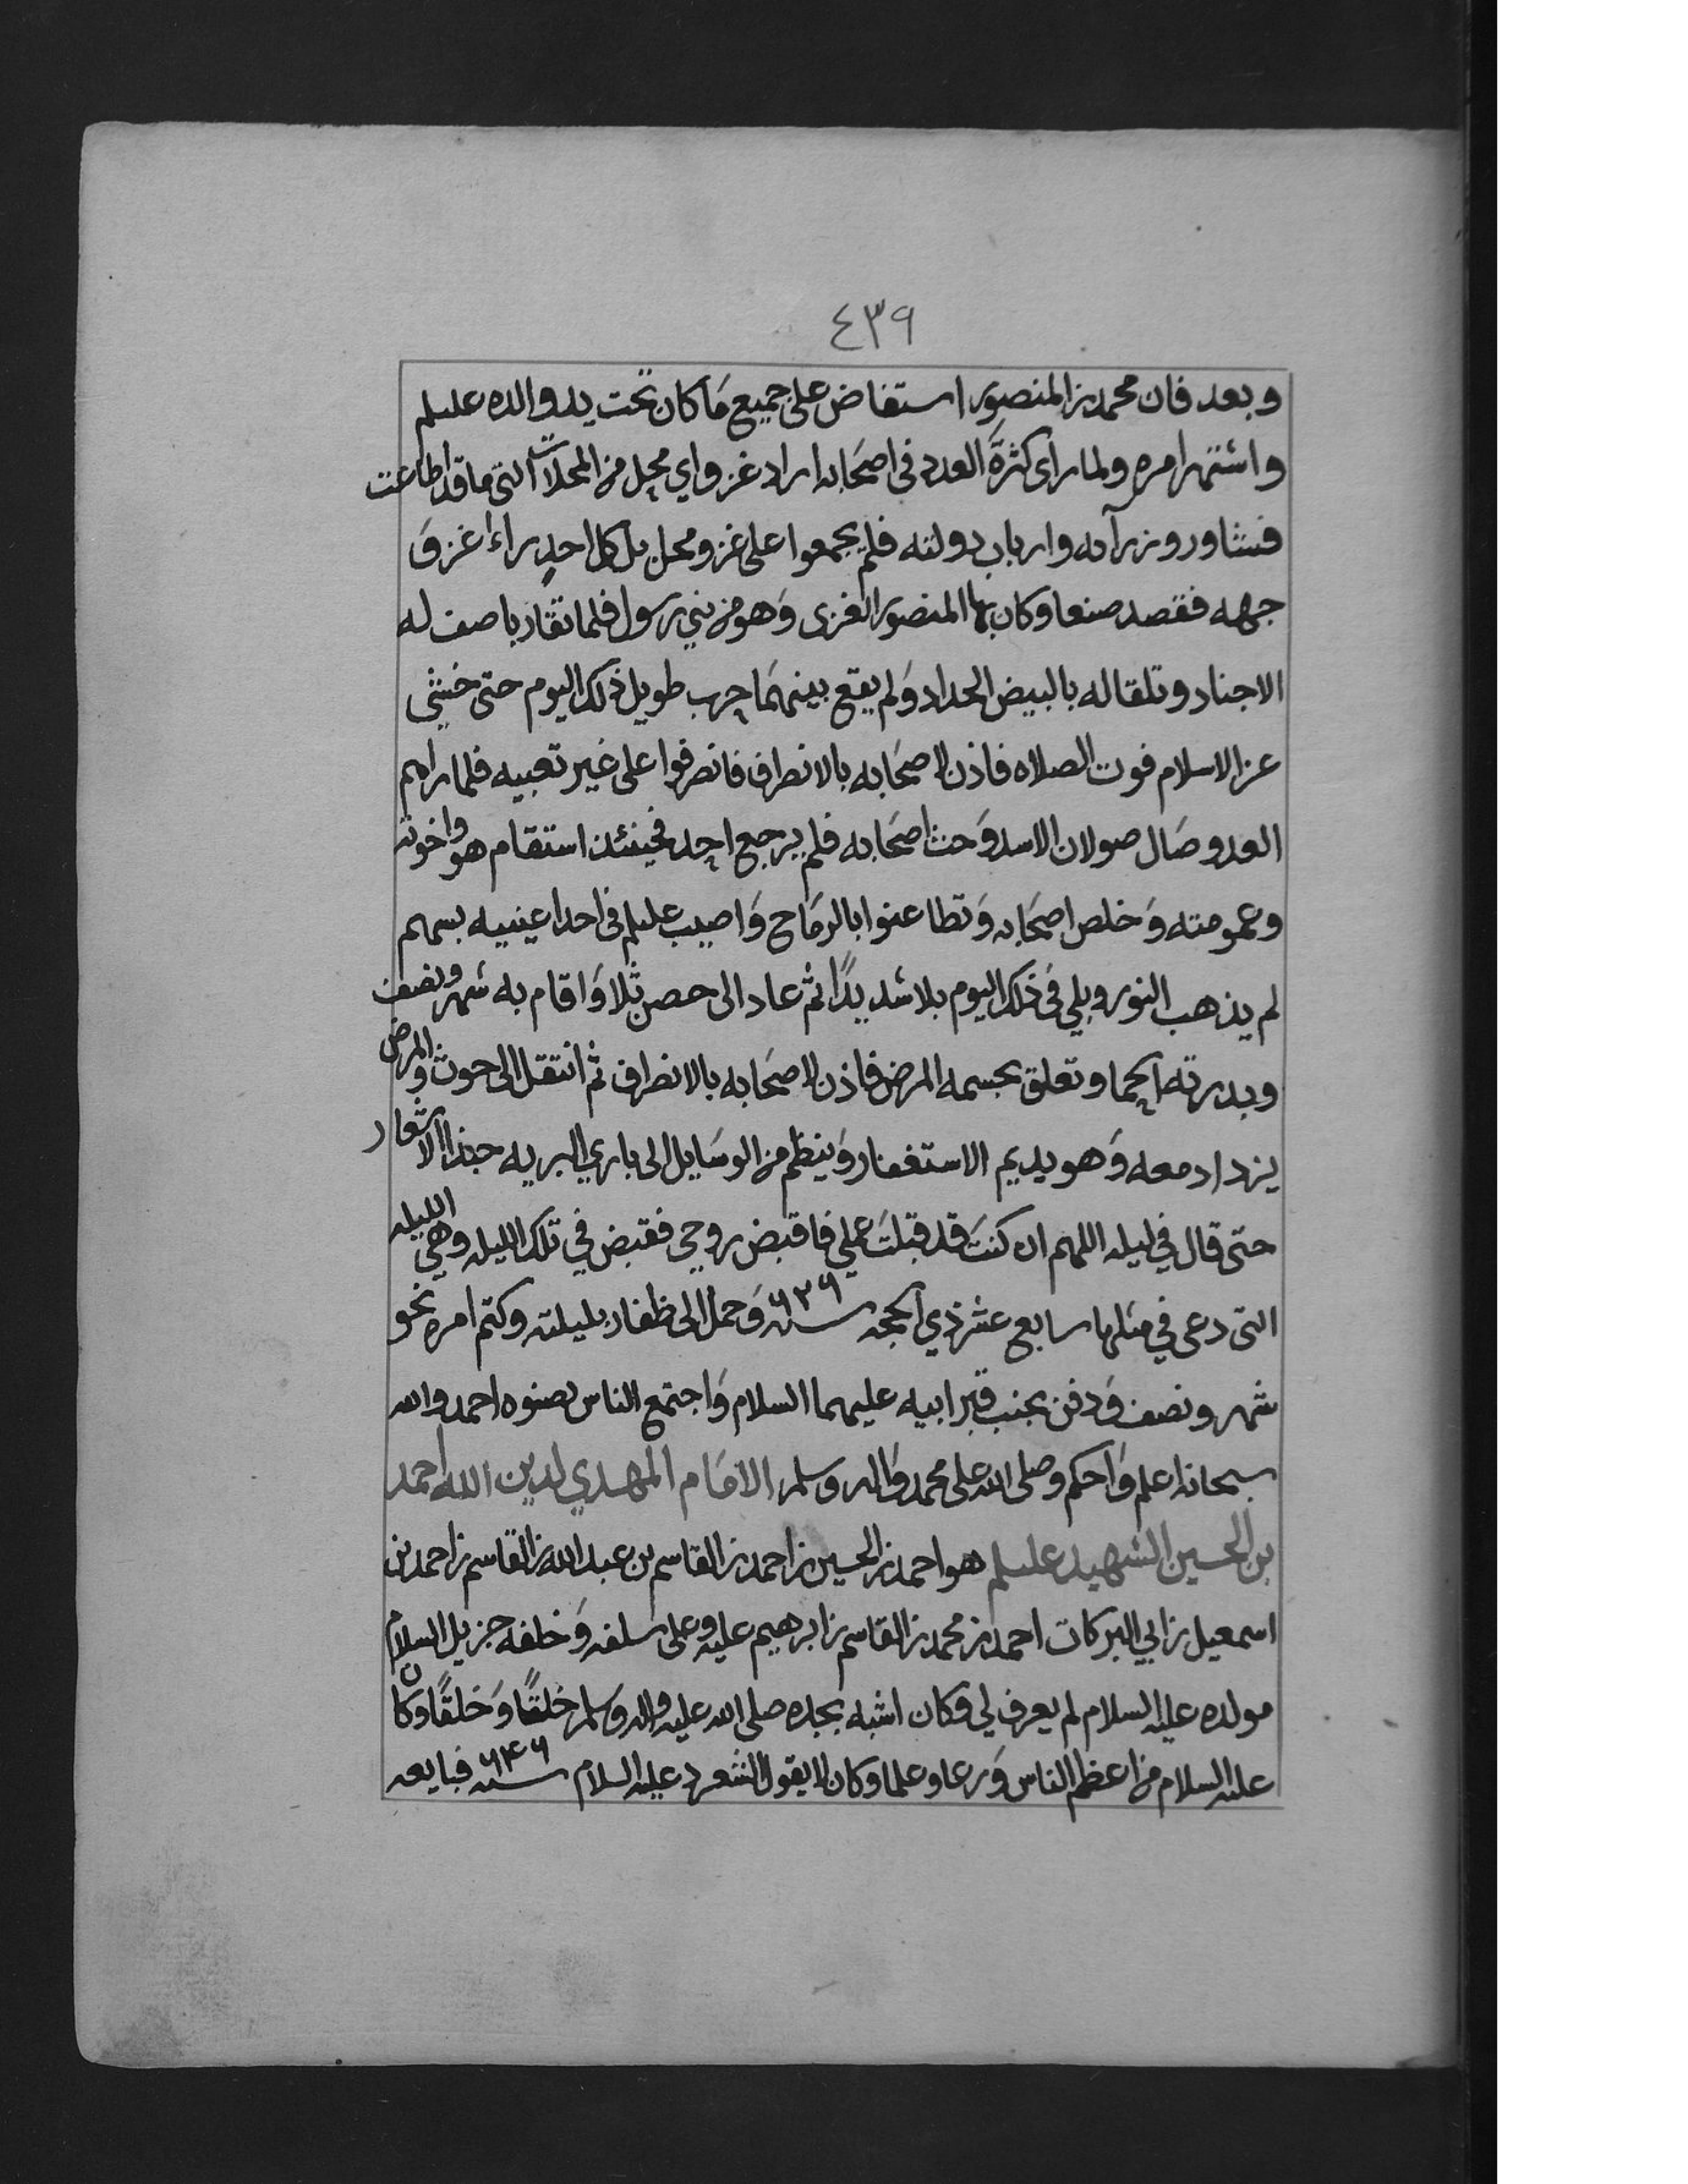 ٤٣٩
وبعد فان محمد بن المنصور استفاض على جميع ما كان تحت يد والده عليلم
واشتهر امره ولما راى كثرة العدد في اصحابه اراد غزو اي محل من المحلات التى ما قد اطاعت
فشاور وزرآه وارباب دولته فلم يجمعوا على غزو محل بل كل احد راء غزو
جهه فقصد صنعا وكان بها المنصور الغزى وهو من بني رسول فلما تقاربا صف له
الاجناد وتلقا له بالبيض الحداد ولم يقع بينهما حرب طويل ذلك اليوم حتى خشى
عز الاسلام فوت الصلاه فاذن لاصحابه بالانصراف فانصرفوا على غير تعبيه فلما راهم
العدو صال صولان الاسد وحث اصحابه فلم يرجع احد فحينئذ استقام هو واخوته
وعمومته وخلص اصحابه وتطاعنوا بالرماح واصيب عليلم في احدا عينيه بسهم
لم يذهب النور وبلي في ذلك اليوم بلا شديدًا ثم عاد الى حصن ثلا واقام به شهر ونصف
وبدرته الحما وتعلق بجسمه المرض فاذن لاصحابه بالانصراف ثم انتقل الى حوث والمرض
يزداد معه وهو يديم الاستغفار وينظم من الوسايل الى باري البريه حبذا الاشعار
حتى قال في ليله اللهم ان كنت قد قبلت عملي فاقبض روحي فقبض في تلك الليله وهي الليله
التى دعى في مثلها سابع عشر ذي الحجه سنه ٦٣٦ وحمل الى ظفار بليلته وكتم امره نحو
شهر ونصف ودفن بجنب قبر ابيه عليهما السلام واجتمع الناس لصنوه احمد والله
سبحانه اعلم واحكم وصلى الله على محمد واله وسلم الامام المهدي لدين الله احمد
بن الحسين الشهيد عليلم هو احمد بن الحسين بن احمد بن القاسم بن عبد الله بن القاسم بن احمد بن
اسمعيل بن ابي البركات احمد بن محمد بن القاسم بن ابرهيم عليه وعلى سلفه وخلفه جزيل السلام
مولده عليه السلام لم يعرف لي وكان اشبه بجده صلى الله عليه واله وسلم خلقًا وخلقًا وكان
عليه السلام من اعظم الناس ورعا وعلما وكان لا يقول الشعر د عليه السلام سنه ٦٤٦ فبايعه